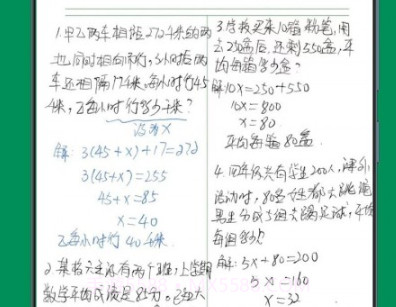 1. 甲乙两车相距272千米的两
地,同时相向而行,3小时后两
车还相隔17千米,甲每小时行45
千米,乙每小时行多少千米?
设为X
解: 3(45+x)+17=272
3(45+x)=255
45+x=85
x=40
乙每小时行40千米
2. 某
数学平均成绩是85分。已知大
3. 学校买来10箱粉笔,用
去250盒后,还剩550盒,平
均每箱多少盒?
解10x=250+550
10x=800
x=80
平均每箱80盒
4. 四年级共有学生200人,课外
活动时,80名女生都去跳绳
男生分成5组去踢足球,平均
每组多少人
解: 5x+80=200
5x=160
x=32